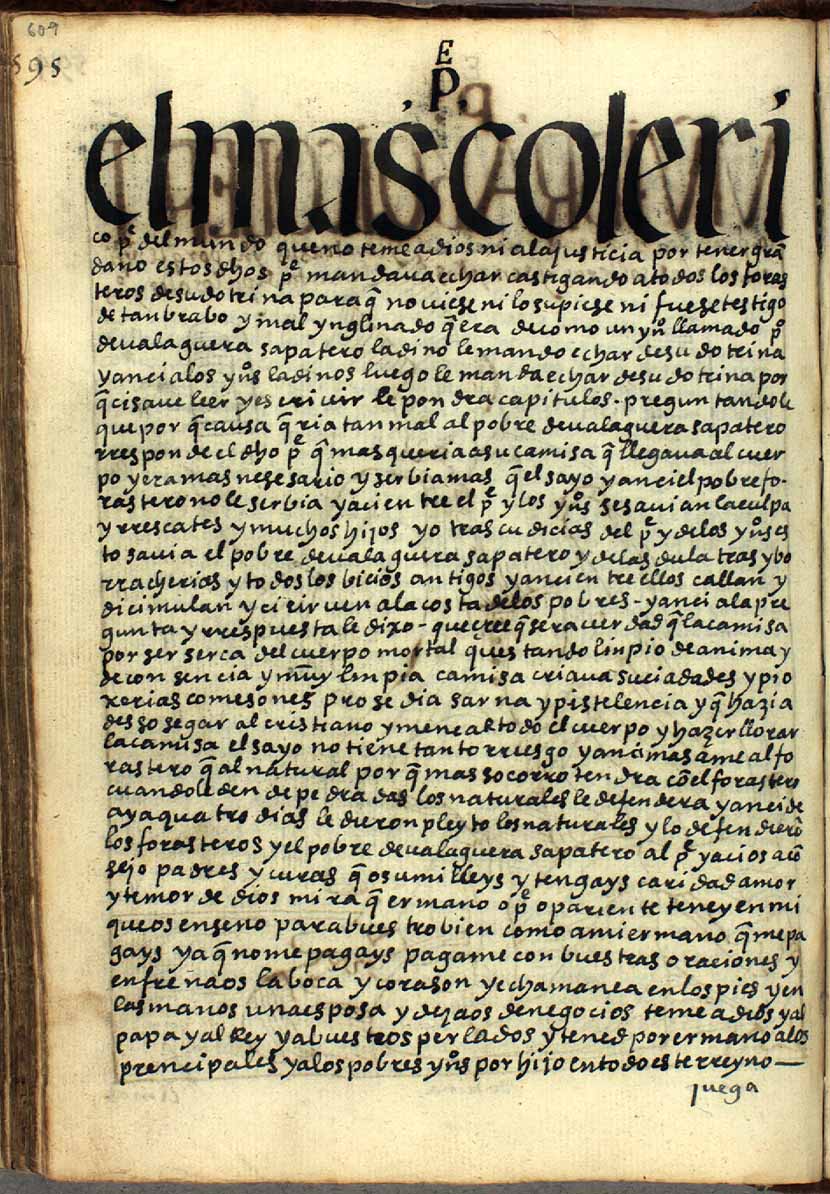 609
595
E
P.
el mas coleri
co pe del mundo que no teme a dios ni a la justicia por tener gran
dano estos dhos pe mandava echar castigando a todos los foras
teros de su dotrina para q̃ no viese ni lo supiese ni fuese testigo
de tan brabo y mal ynglinado q̃ era de como un yno llamado po
de ualaguera sapatero ladino le mando echar de su dotrina
y anci a los yns ladinos luego le manda echar de su dotrina por
q̃ ci saue leer y escriuir le pondra capitulos - preguntandole
que por q̃ causa q̃ria tan mal al pobre de ualaguera sapatero
rresponde el dho pe q̃ mas queria a su camisa q̃ llegaua al cuer
po y era mas nesesario y serbia mas q̃ el sayo y anci el pobre fo-
rastero no le serbia y aci entre el pe y los yns se sauian la culpa
y rrescates y muchos hijos y otras cudicias del pe y de los yns es
to sauia el pobre de ualaguera sapatero y de las dulatras y bo
rracherias y todos los bicios antigos y anci entre ellos callan y
dicimulan y ci ciruen a la costa de los pobres - y anci a la pre
gunta y rrespuesta le dixo - que cree q̃ sera uerdad q̃ la camisa
por ser serca del cuerpo mortal ques tando linpio de anima y
de consencia y muy linpia camisa criaua suciadades y pio
xerias comesones prosedia sarna y pistelencia y q̃ hazia
desosegar al cristiano y menear todo el cuerpo y hazer llorar
la camisa el sayo no tiene tanto rriesgo y anci mas ame al fo
rastero q̃ al natural por q̃ mas socorro tendra cõ el forastero
cuando le den de pedradas los naturales le defendera y anci de
aya quatro dias le dieron pleyto los naturales y lo defendierõ
los forasteros y el pobre de ualaguera sapatero al pe y aci os acõ
sejo padres y curas q̃ os umilleys y tengays caridad amor
y temor de dios mira q̃ ermano o pe o pariente teney en mi
que os enseno para buestro bien como a mi ermano q̃ me pa
gays ya q̃ no me pagays pagame con buestras oraciones y
enfrenaos la boca y corason y echa manea en los pies y en
las manos una esposa y dejaos de negocios teme a dios y al
papa y al rrey y a buestros perlados y tened por ermano a los
prencipales y a los pobres yns por hijo en todo este rreyno —
juega